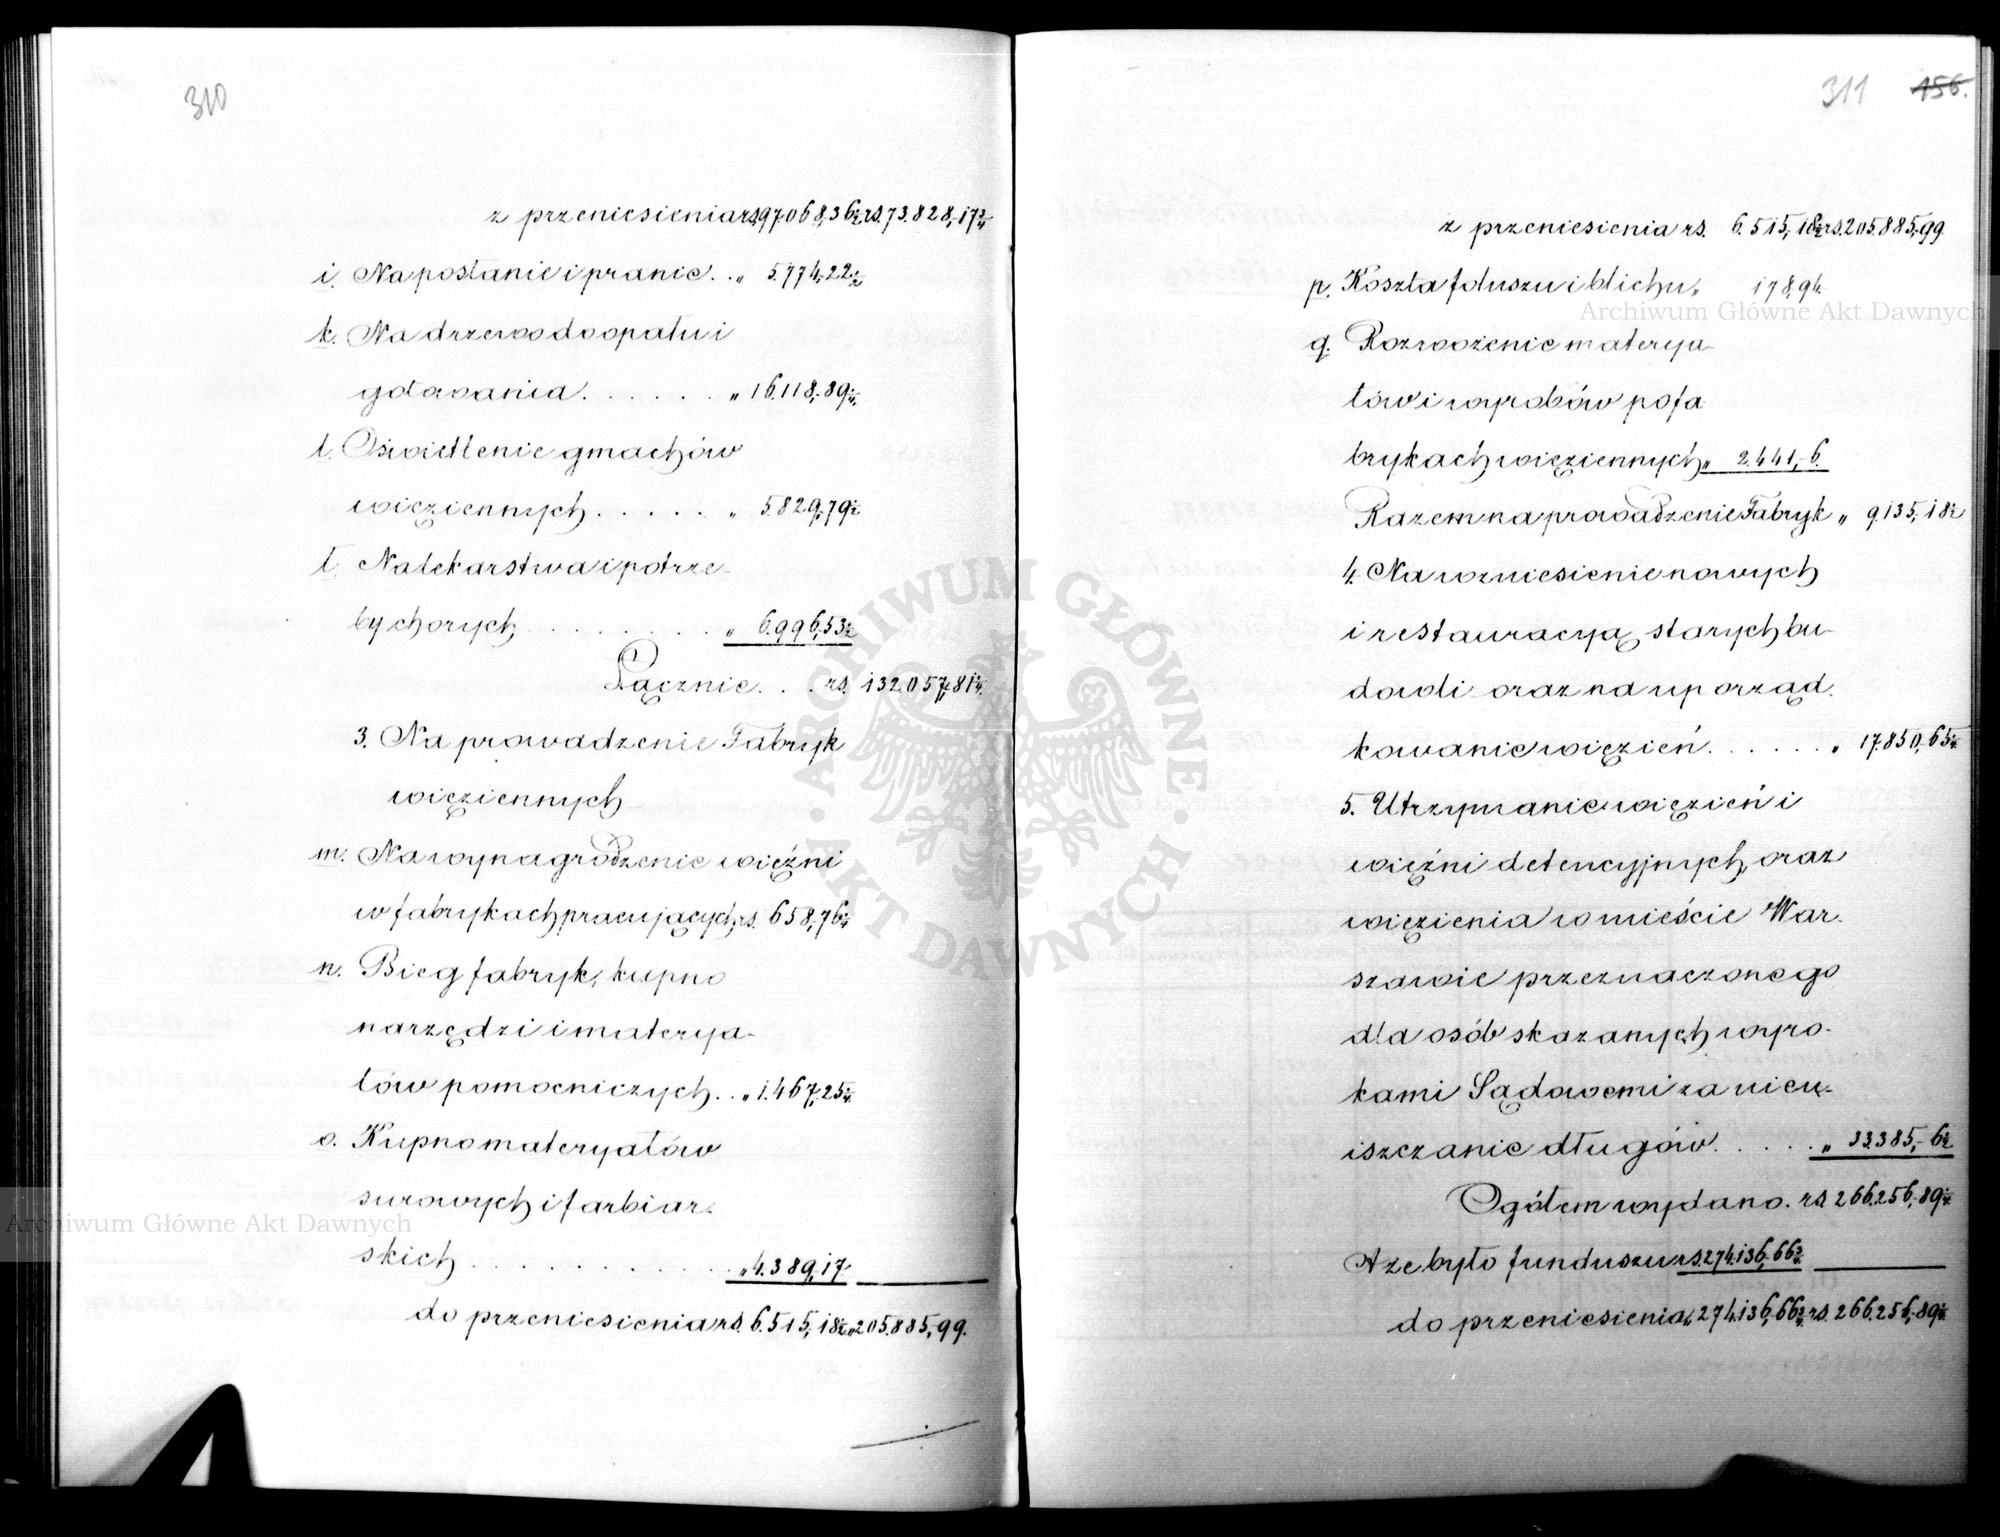 310
z przeniesienia rs. 97.068,36½ rs. 73.828,17¾
i. Na posłanie i pranie . . „ 5.774,22½
k. Na drzewo do opału i
gotowania . . . . . . „ 16.118,89¼
l. Oświetlenie gmachów
więziennych . . . . . „ 5.829,79½
ł. Na lekarstwa i potrze-
by chorych . . . . . . . . „ 6.996,53½
Łącznie . . . rs. 132.057,81¼
3. Na prowadzenie Fabryk
więziennych
m. Na wynagrodzenie więźni
w fabrykach pracujących rs. 658,76¼
n. Bieg fabryk, kupno
narzędzi i materya-
łów pomocniczych . . „ 1.467,25¼
o. Kupno materyałów
surowych i farbiar-
skich . . . . . . . . . . . „ 4.389,17.
do przeniesienia rs. 6.515,18½ „ 205.885,99.
311 156.
z przeniesienia rs. 6.515,18½ rs. 205.885,99
p. Koszta foluszu i blichu „ 178,94.
q. Rozwożenie materya-
łów i wyrobów po fa
brykach więziennych „ 2.441,-6.
Razem na prowadzenie Fabryk „ 9.135,18½
4. Na wzniesienie nowych
i restauracyą starych bu-
dowli oraz na uporząd-
kowanie więzień . . . . . . „ 17.850,65¼
5. Utrzymanie więzień i
więźni detencyjnych, oraz
więzienia w mieście War-
szawie przeznaczonego
dla osób skazanych wyro-
kami Sądowemi za nieu-
iszczanie długów . . . . . „ 33.385,-6½
Ogółem wydano . rs. 266.256,89¼
A że było funduszu rs. 274.136,66¾
do przeniesienia „ 274.136,66¾ rs. 266.256,89¼
ARCHIWUM GŁÓWNE · AKT DAWNYCH ·
Archiwum Główne Akt Dawnych
Archiwum Główne Akt Dawnych